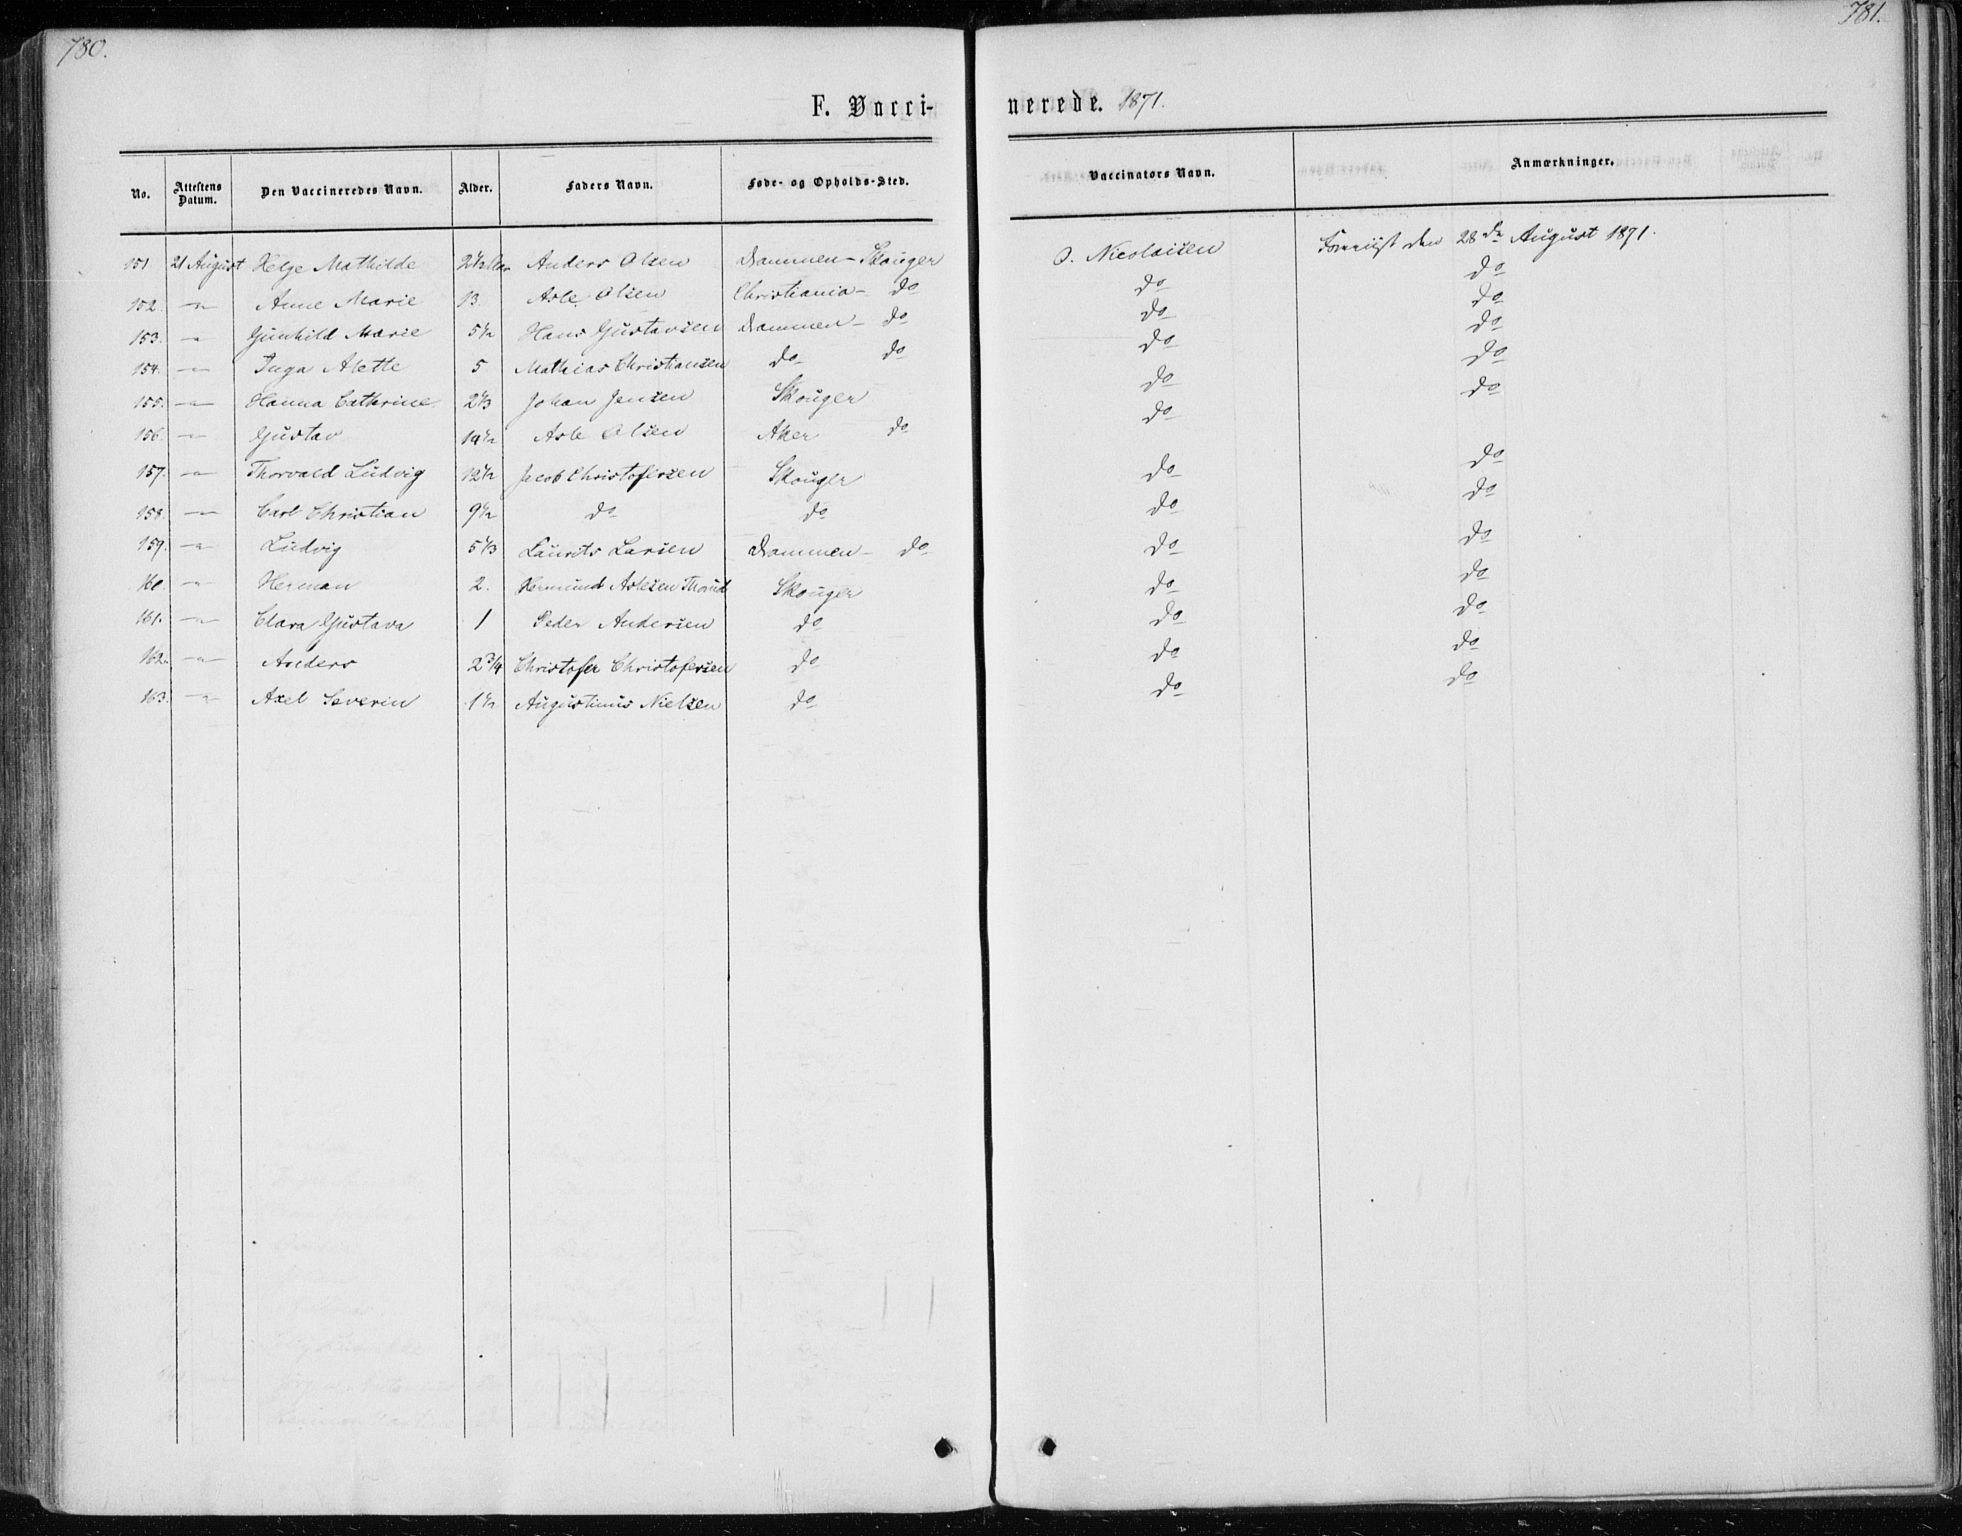 780.
781.
F. Vacci-nerede. 1871.
No. | Attestens Datum. | Den Vaccineredes Navn. | Alder. | Faders Navn. | Føde- og Opholds-Sted. | Vaccinators Navn. | Anmærkninger.
151 | 21 August | Helge Mathilde | 2½ | Anders Olsen | Drammen - Skouger | O. Nicolaisen | den 28de August 1871.
152. | -"- | Anne Marie | 13. | Asle Olsen | Christiania - do | do | do
153. | -"- | Gunhild Marie | 5½ | Hans Gustavsen | Drammen - do | do | do
154. | -"- | Inga Alette | 5 | Mathias Christiansen | do do | do | do
155. | -"- | Hanna Cathrine | 2⅓ | Johan Jensen | Skouger | do | do
156. | -"- | Gustav | 14½ | Asle Olsen | Aker do | do | do
157. | -"- | Thorvald Ludvig | 12½ | Jacob Christofersen | Skouger | do | do
158. | -"- | Carl Christian | 9½ | do | do | do | do
159. | -"- | Ludvig | 5⅓ | Laurits Larsen | Drammen - do | do | do
160. | -"- | Herman | 2. | Hermund Aslesen | Skouger | do | do
161. | -"- | Clara Gustava | 1 | Peder Andersen | do | do | do
162. | -"- | Anders | 2¾ | Christofer Christofersen | do | do | do
163. | -"- | Axel Severin | 1½ | Augustinus Nielsen | do | do | do